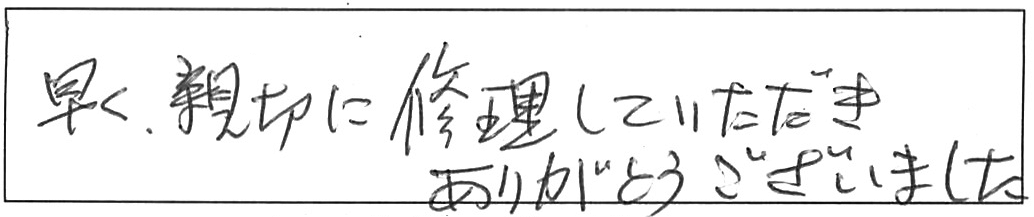 早く、親切に修理していただき
ありがとうございました